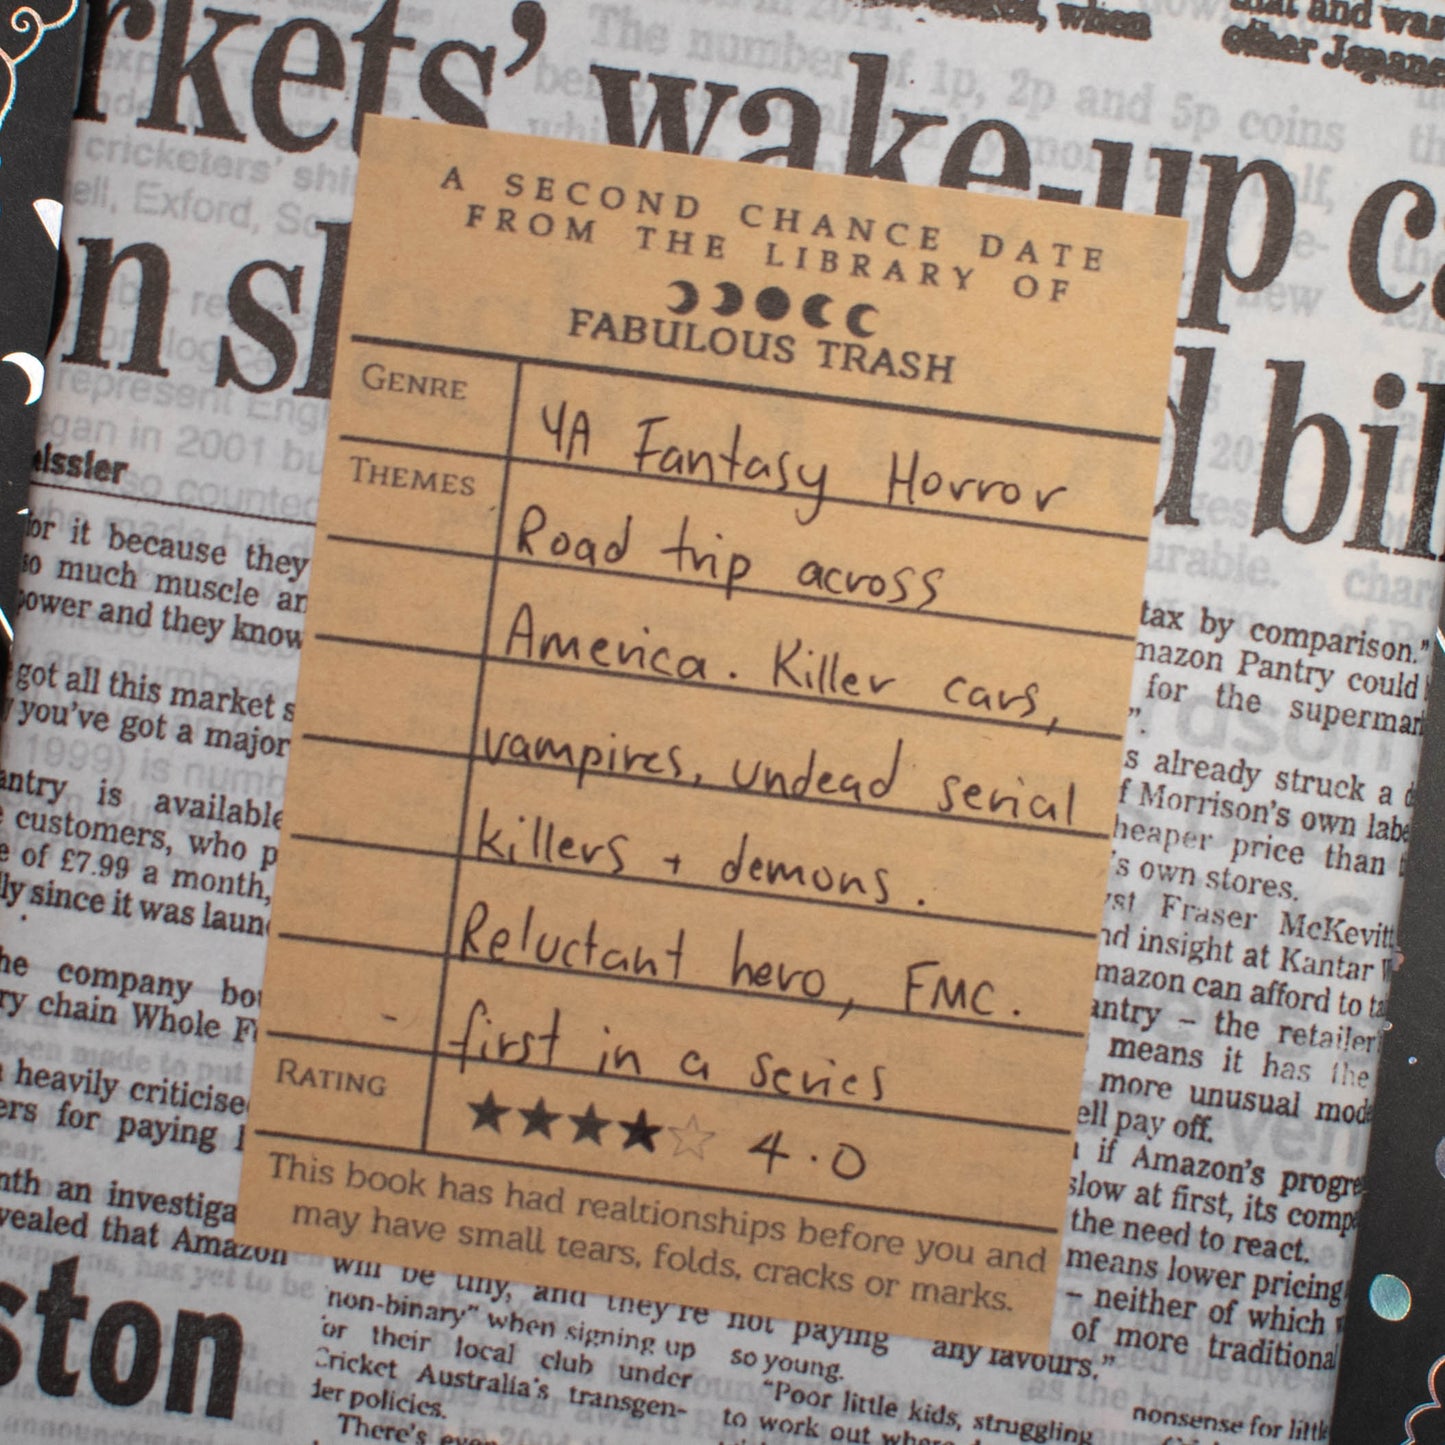 rkets' wake-up c
n s
d bil
The number of 1p, 2p and 5p coins
that and was
other Japane
, when
cricketers' shi
ell, Exford, So
represent Eng
gan in 2001 bu
eissler
or it because they
so much muscle an
power and they know
got all this market s
you've got a major
antry is available
customers, who p
e of £7.99 a month,
ly since it was laun
he company bo
ry chain Whole F
heavily criticise
ers for paying
nth an investiga
vealed that Amazon
ston
A SECOND CHANCE DATE
FROM THE LIBRARY OF
FABULOUS TRASH
GENRE
YA Fantasy Horror
THEMES
Road trip across
America. Killer cars,
vampires, undead serial
killers + demons.
Reluctant hero, FMC.
first in a series
RATING
★★★★☆ 4.0
This book has had realtionships before you and
may have small tears, folds, cracks or marks.
will be tiny, and they're not paying
non-binary" when signing up
or their local club under
Cricket Australia's transgen-
der policies.
There's even
so young.
"Poor little kids, struggling
to work out where
any favours."
nonsense for little
tax by comparison."
mazon Pantry could
for the supermar
".
s already struck a d
f Morrison's own labe
heaper price than
's own stores.
yst Fraser McKevitt
nd insight at Kantar W
mazon can afford to ta
antry – the retailer
means it has the
more unusual mod
ell pay off.
if Amazon's progre
slow at first, its comp
the need to react.
means lower pricing
– neither of which
of more traditional